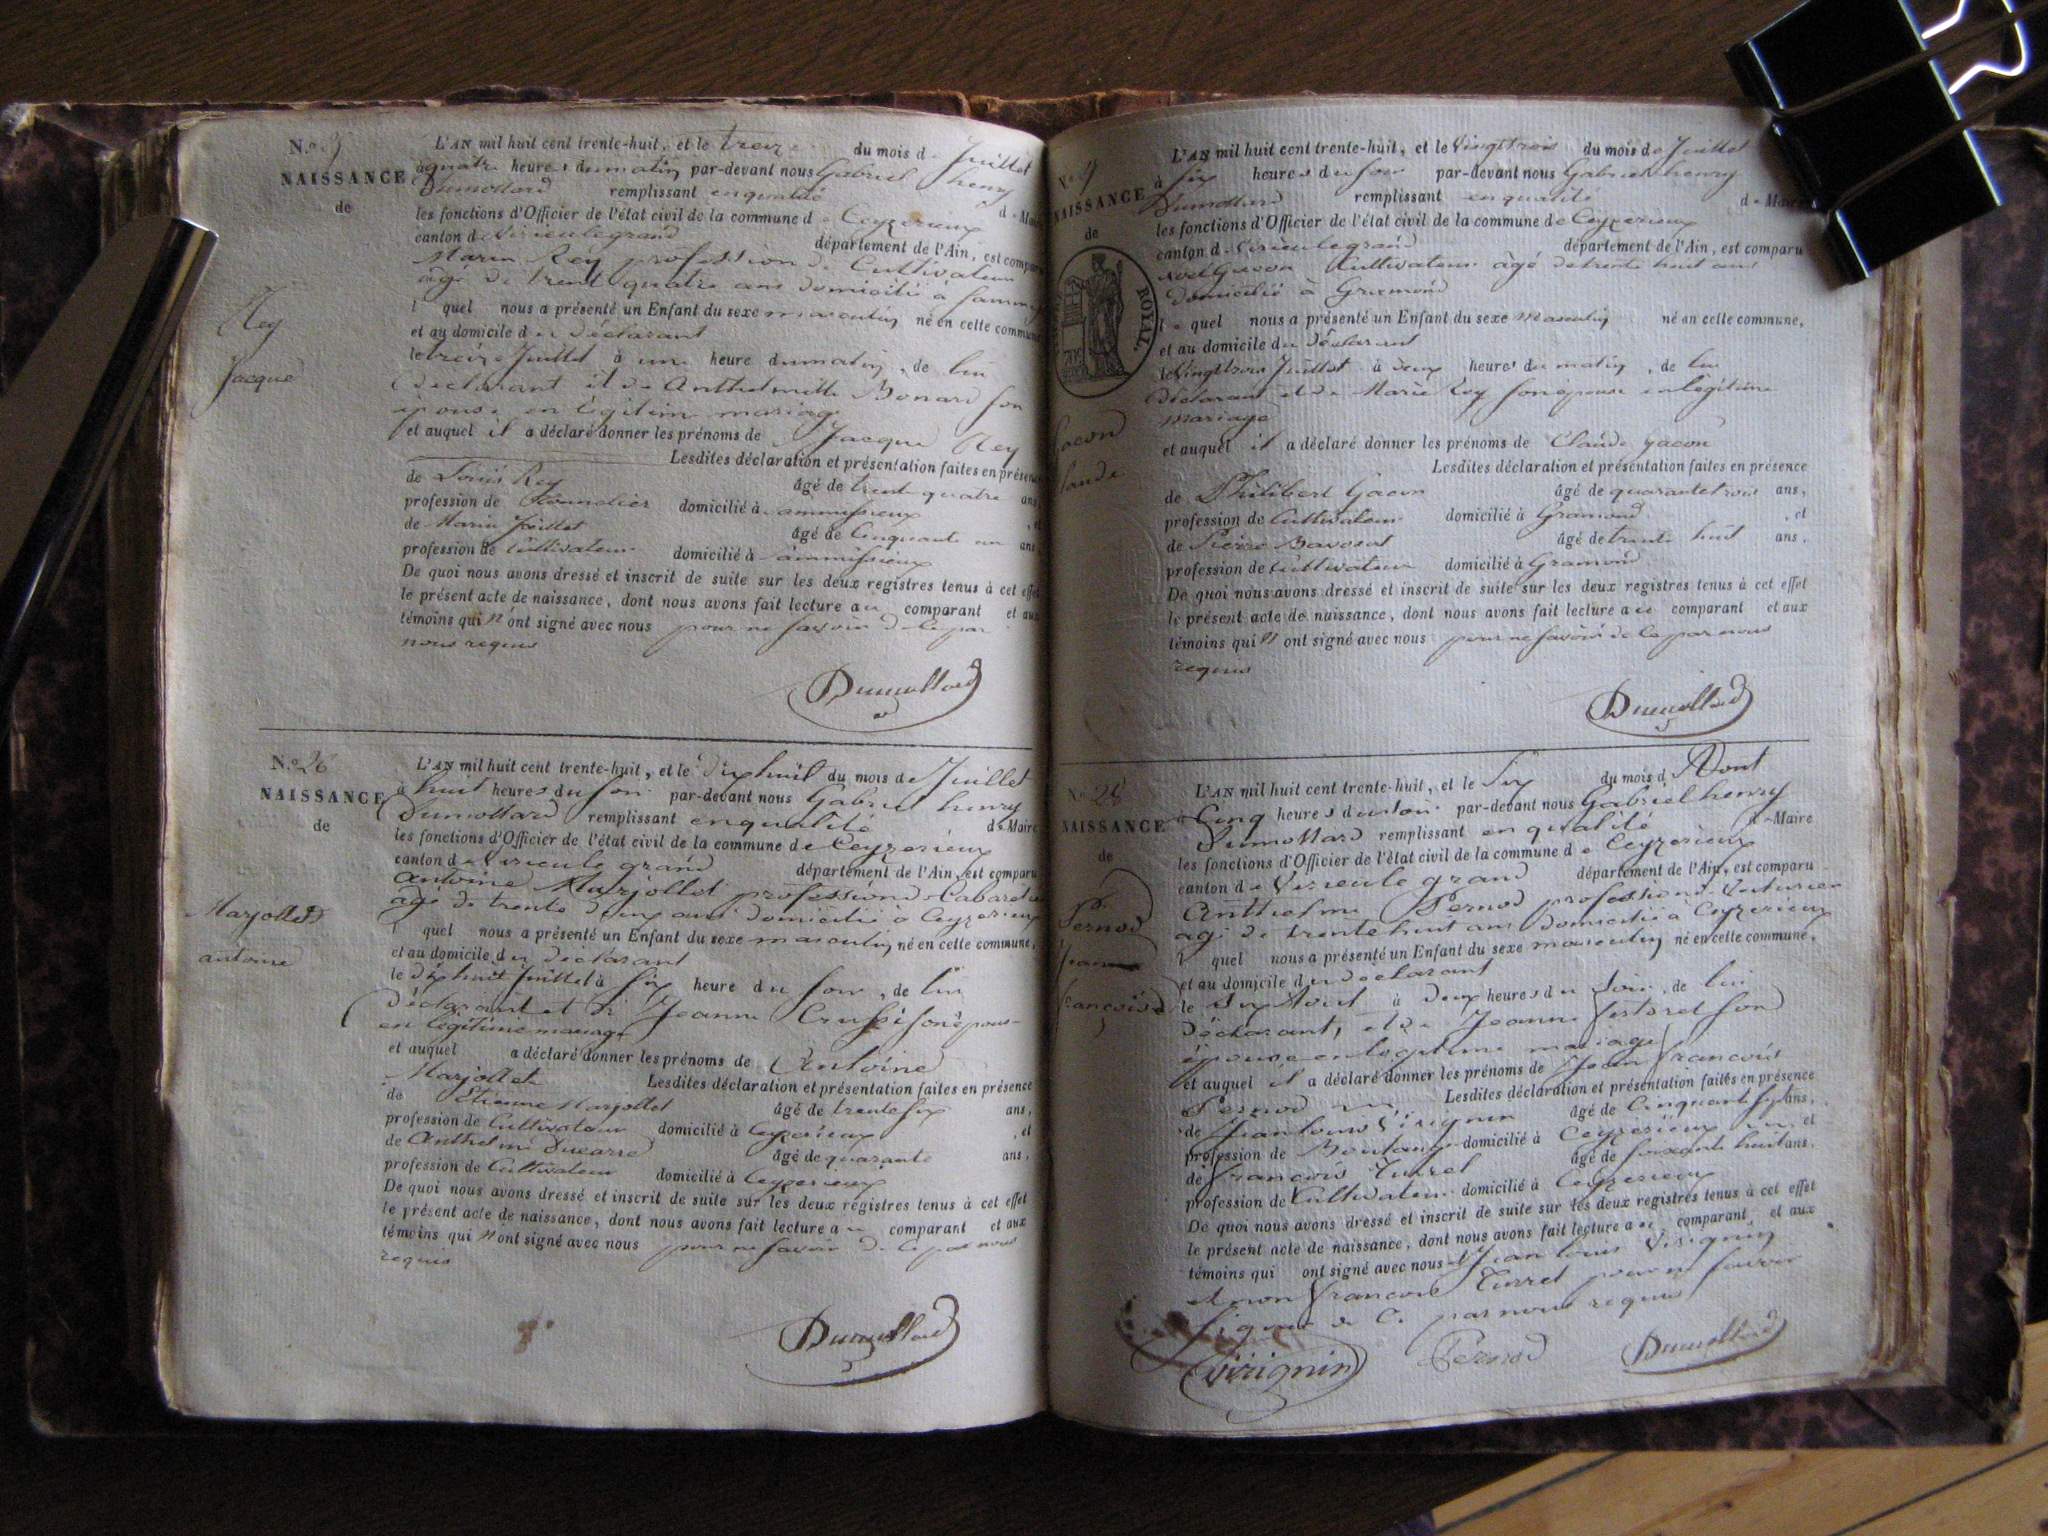 N.o
NAISSANCE
de
Rey
Jacque
L'AN mil huit cent trente-huit, et le treize du mois de Juillet
à quatre heures du matin par-devant nous Gabriel henry
Dumollard remplissant en qualité de Maire
les fonctions d'Officier de l'état civil de la commune de Ceyzerieux
canton de Virieulegrand département de l'Ain, est comparu
Marin Rey profession de Cultivateur
âgé de trent quatre ans domicilié à
l quel nous a présenté un Enfant du sexe masculin né en cette commune
et au domicile du déclarant
le treize Juillet à une heure du matin, de lui
déclarant et de Anthelmette Bonard son
épouse en légitime mariage
et auquel il a déclaré donner les prénoms de Jacque Rey
Lesdites déclaration et présentation faites en présence
de Louis Rey âgé de trente quatre ans,
profession de domicilié à ammesieux, et
de Marin Juillet âgé de Cinquante un ans,
profession de Cultivateur domicilié à
De quoi nous avons dressé et inscrit de suite sur les deux registres tenus à cet effet
le présent acte de naissance, dont nous avons fait lecture au comparant et aux
témoins qui n'ont signé avec nous pour ne savoir de ce par
nous requis
Dumollard
N.o 26
NAISSANCE
de
Marjollet
antoine
L'AN mil huit cent trente-huit, et le Dix huit du mois de Juillet
à huit heures du soir par-devant nous Gabriel henry
Dumollard remplissant en qualité de Maire
les fonctions d'Officier de l'état civil de la commune de Ceyzerieux
canton de Virieule grand département de l'Ain, est comparu
antoine Marjollet profession de Cabaretier
âgé de trente deux ans domicilié à Ceyzerieux
l quel nous a présenté un Enfant du sexe masculin né en cette commune,
et au domicile du déclarant
le dix huit Juillet à six heure du soir, de lui
déclarant et de Jeanne son épouse
en légitime mariage
et auquel a déclaré donner les prénoms de Antoine
Marjollet Lesdites déclaration et présentation faites en présence
de Etienne Marjollet âgé de trente six ans,
profession de Cultivateur domicilié à Ceyzerieux, et
de Anthelme Ducarre âgé de quarante ans,
profession de Cultivateur domicilié à Ceyzerieux
De quoi nous avons dressé et inscrit de suite sur les deux registres tenus à cet effet
le présent acte de naissance, dont nous avons fait lecture au comparant et aux
témoins qui n'ont signé avec nous pour ne savoir de ce par nous
requis
Dumollard
NAISSANCE
de
ROYAL
gacon
Claude
L'AN mil huit cent trente-huit, et le Vingt trois du mois de Juillet
à six heures du soir par-devant nous Gabriel henry
Dumollard remplissant en qualité de Maire
les fonctions d'Officier de l'état civil de la commune de Ceyzerieux
canton de Virieulegrand département de l'Ain, est comparu
Noel Gacon Cultivateur âgé de trente huit ans
domicilié à Gramond
le quel nous a présenté un Enfant du sexe masculin né en cette commune,
et au domicile du déclarant
le Vingt trois Juillet à deux heures du matin, de lui
déclarant et de Marie Rey son épouse en légitime
mariage
et auquel il a déclaré donner les prénoms de Claude gacon
Lesdites déclaration et présentation faites en présence
de Philibert Gacon âgé de quarante trois ans,
profession de Cultivateur domicilié à Gramond, et
de Pierre Bavosat âgé de trente huit ans,
profession de Cultivateur domicilié à Gramond
De quoi nous avons dressé et inscrit de suite sur les deux registres tenus à cet effet
le présent acte de naissance, dont nous avons fait lecture a ce comparant et aux
témoins qui n ont signé avec nous pour ne savoir de ce par nous
requis
Dumollard
N.o 28
NAISSANCE
de
Pernod
Jean
françois
L'AN mil huit cent trente-huit, et le Six du mois d'Aout
à Cinq heures du soir par-devant nous Gabriel henry
Dumollard remplissant en qualité de Maire
les fonctions d'Officier de l'état civil de la commune de Ceyzerieux
canton de Virieule grand département de l'Ain, est comparu
Anthelme Pernod profession de Voiturier
âgé de trente huit ans domicilié à Ceyzerieux
l quel nous a présenté un Enfant du sexe masculin né en cette commune,
et au domicile du déclarant
le Six Aout à deux heures du soir, de lui
déclarant, et de Jeanne son
épouse en légitime mariage
et auquel il a déclaré donner les prénoms de Jean francois
Pernod Lesdites déclaration et présentation faites en présence
de Jean Louis Virignin âgé de Cinquante six ans,
profession de domicilié à Ceyzerieux et
de françois Turrel âgé de soixante huit ans,
profession de Cultivateur domicilié à Ceyzerieux
De quoi nous avons dressé et inscrit de suite sur les deux registres tenus à cet effet
le présent acte de naissance, dont nous avons fait lecture a ce comparant et aux
témoins qui ont signé avec nous Jean Louis Virignin
et non francois Turrel pour ne savoir
signer de ce par nous requis
Virignin Pernod Dumollard